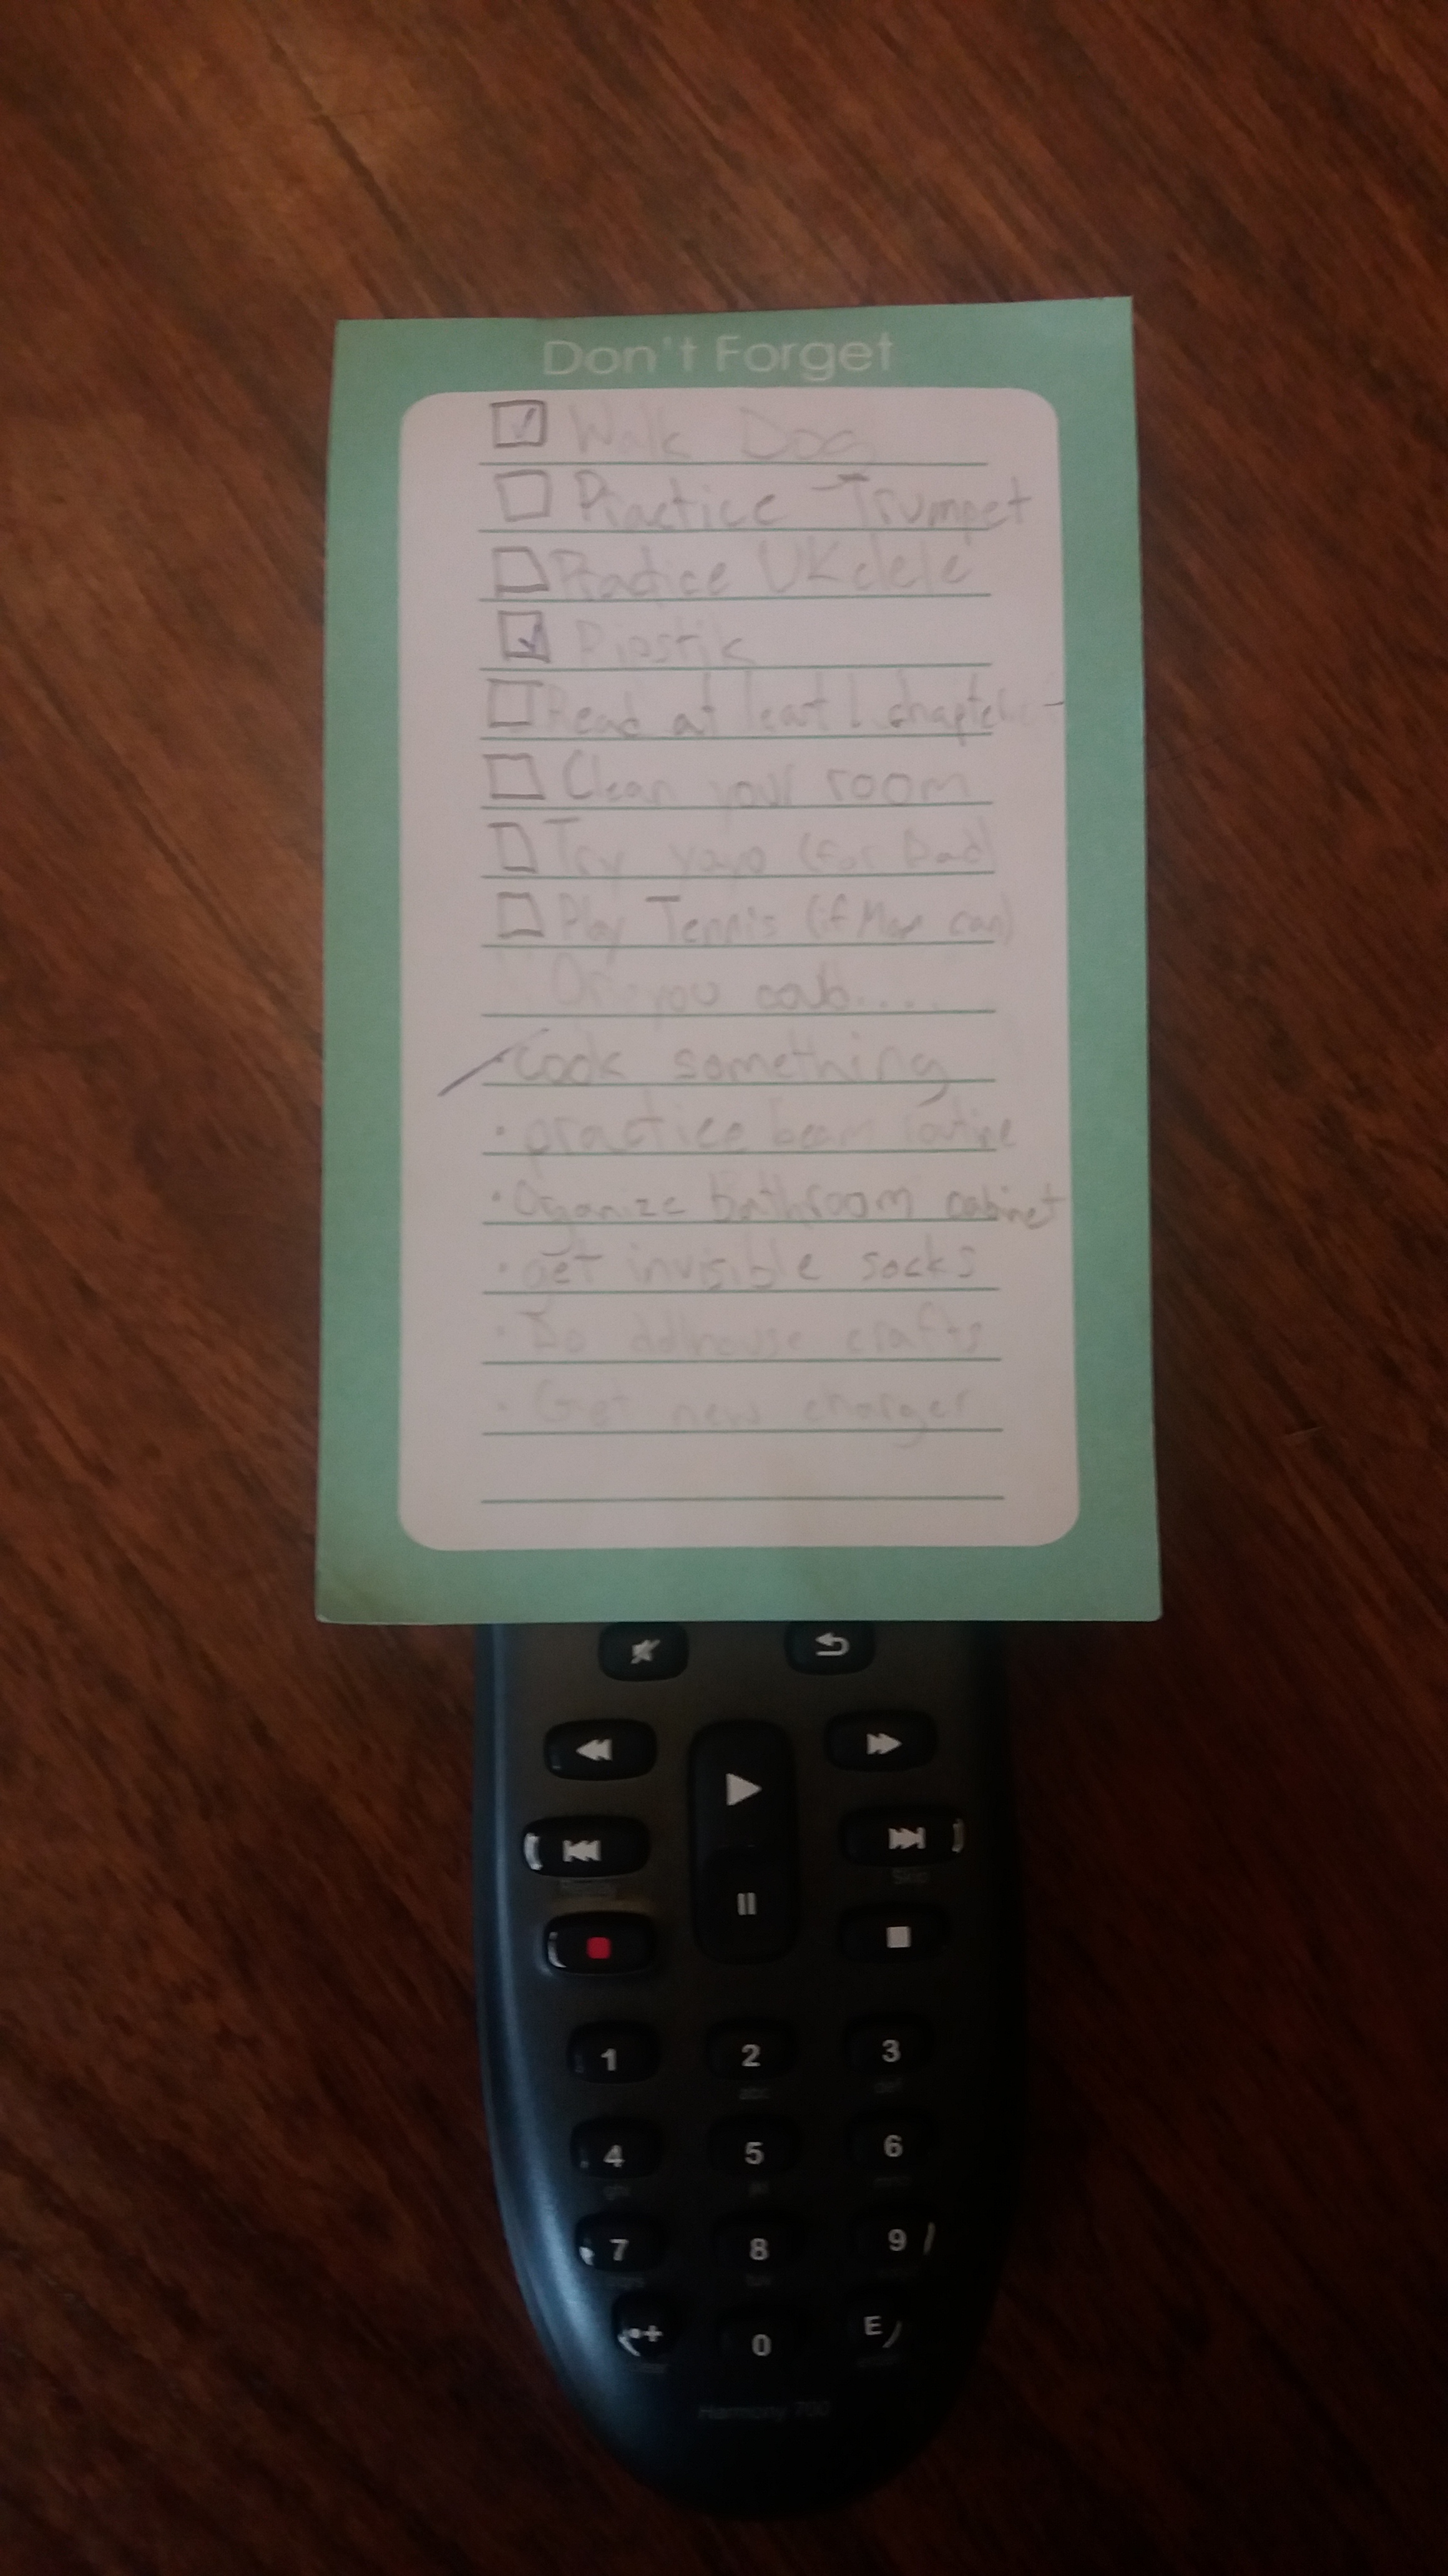 Don't Forget
Walk Dog
Practice Trumpet
Practice Ukelele
Ripstik
Read at least 1 chapter
Clean your room
Try yoyo (for Dad)
Play Tennis (if Mom can)
Or you could....
Cook something
· practice beam routine
· Organize Bathroom cabinet
· get invisible socks
· Do dollhouse crafts
· Get new charger
Skip
1 2 3
abc def
4 5 6
ghi jkl mno
7 8 9
0 E
Harmony 700